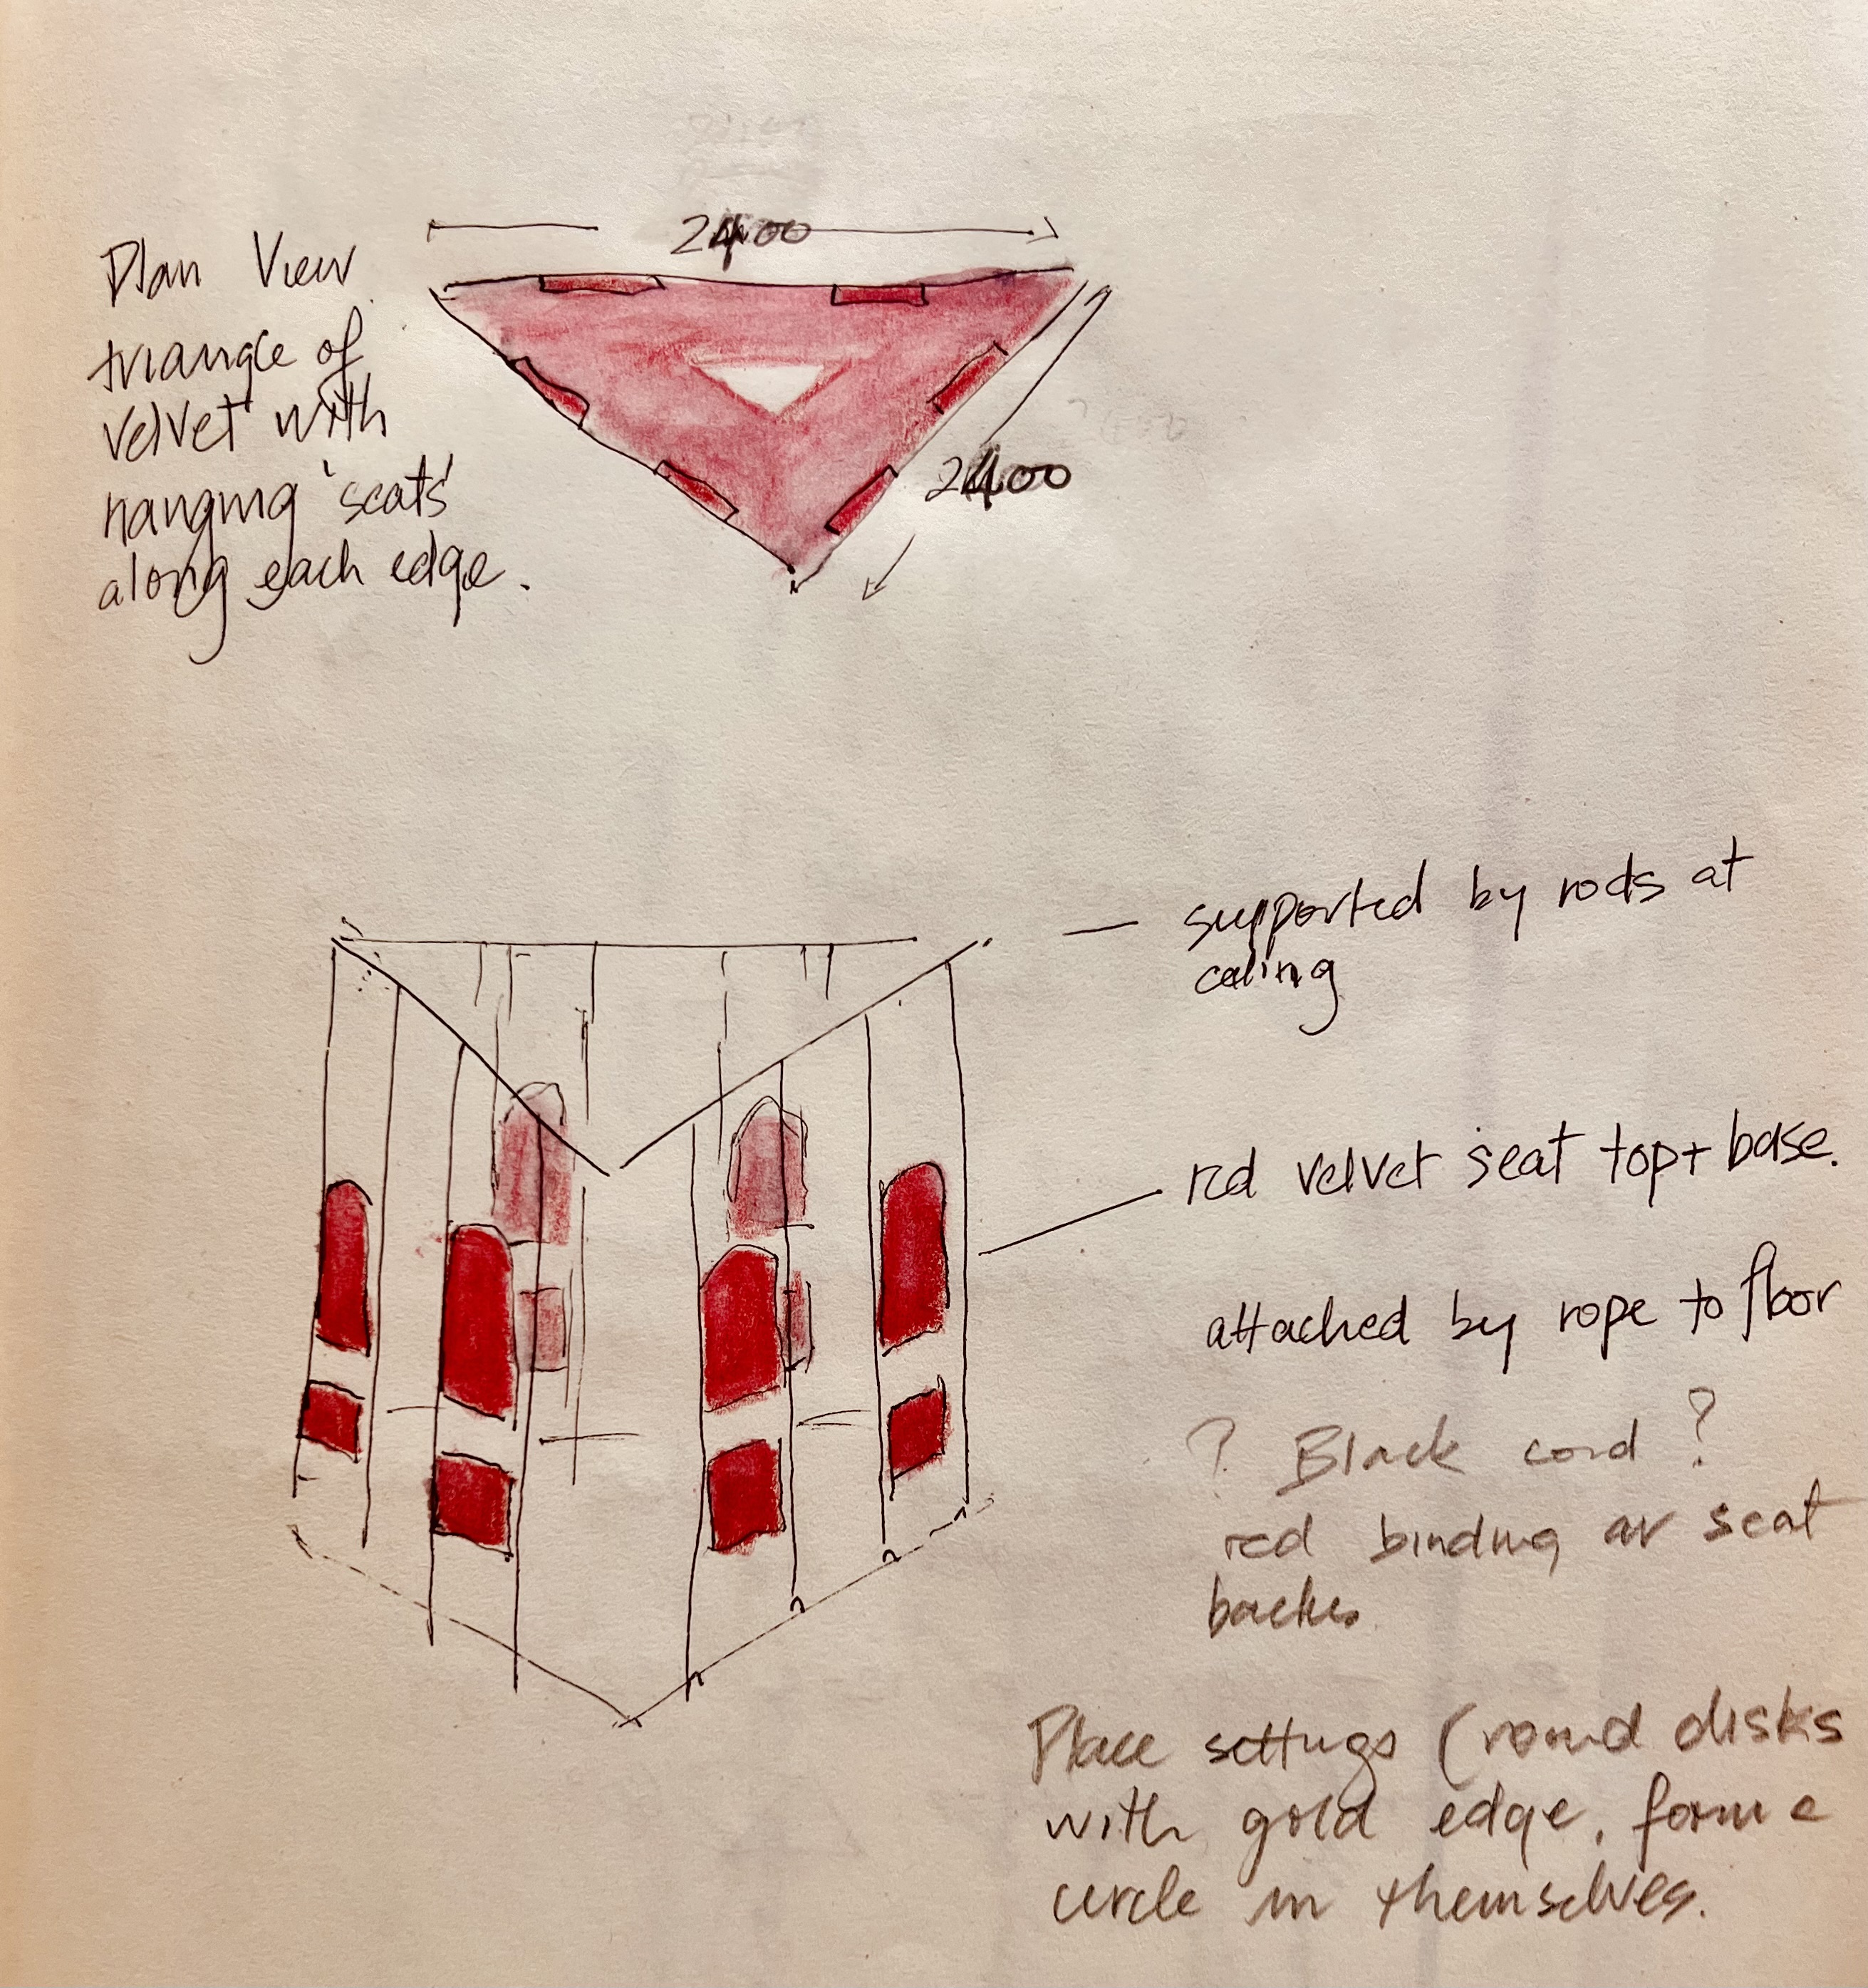 2400
Plan View
triangle of
velvet with
hanging 'seats'
along each edge.
2400
supported by rods at
ceiling
red velvet seat top + base.
attached by rope to floor
? Black cord ?
red binding at seat
backs.
Place settings (round disks
with gold edge, form a
circle in themselves.